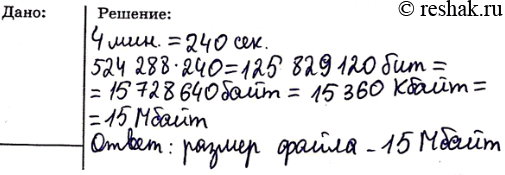 © reshak.ru
Дано: Решение:
4 мин. = 240 сек.
524 288·240=125 829 120 бит =
= 15 728 640 байт = 15 360 Кбайт =
= 15 Мбайт
Ответ: размер файла - 15 Мбайт